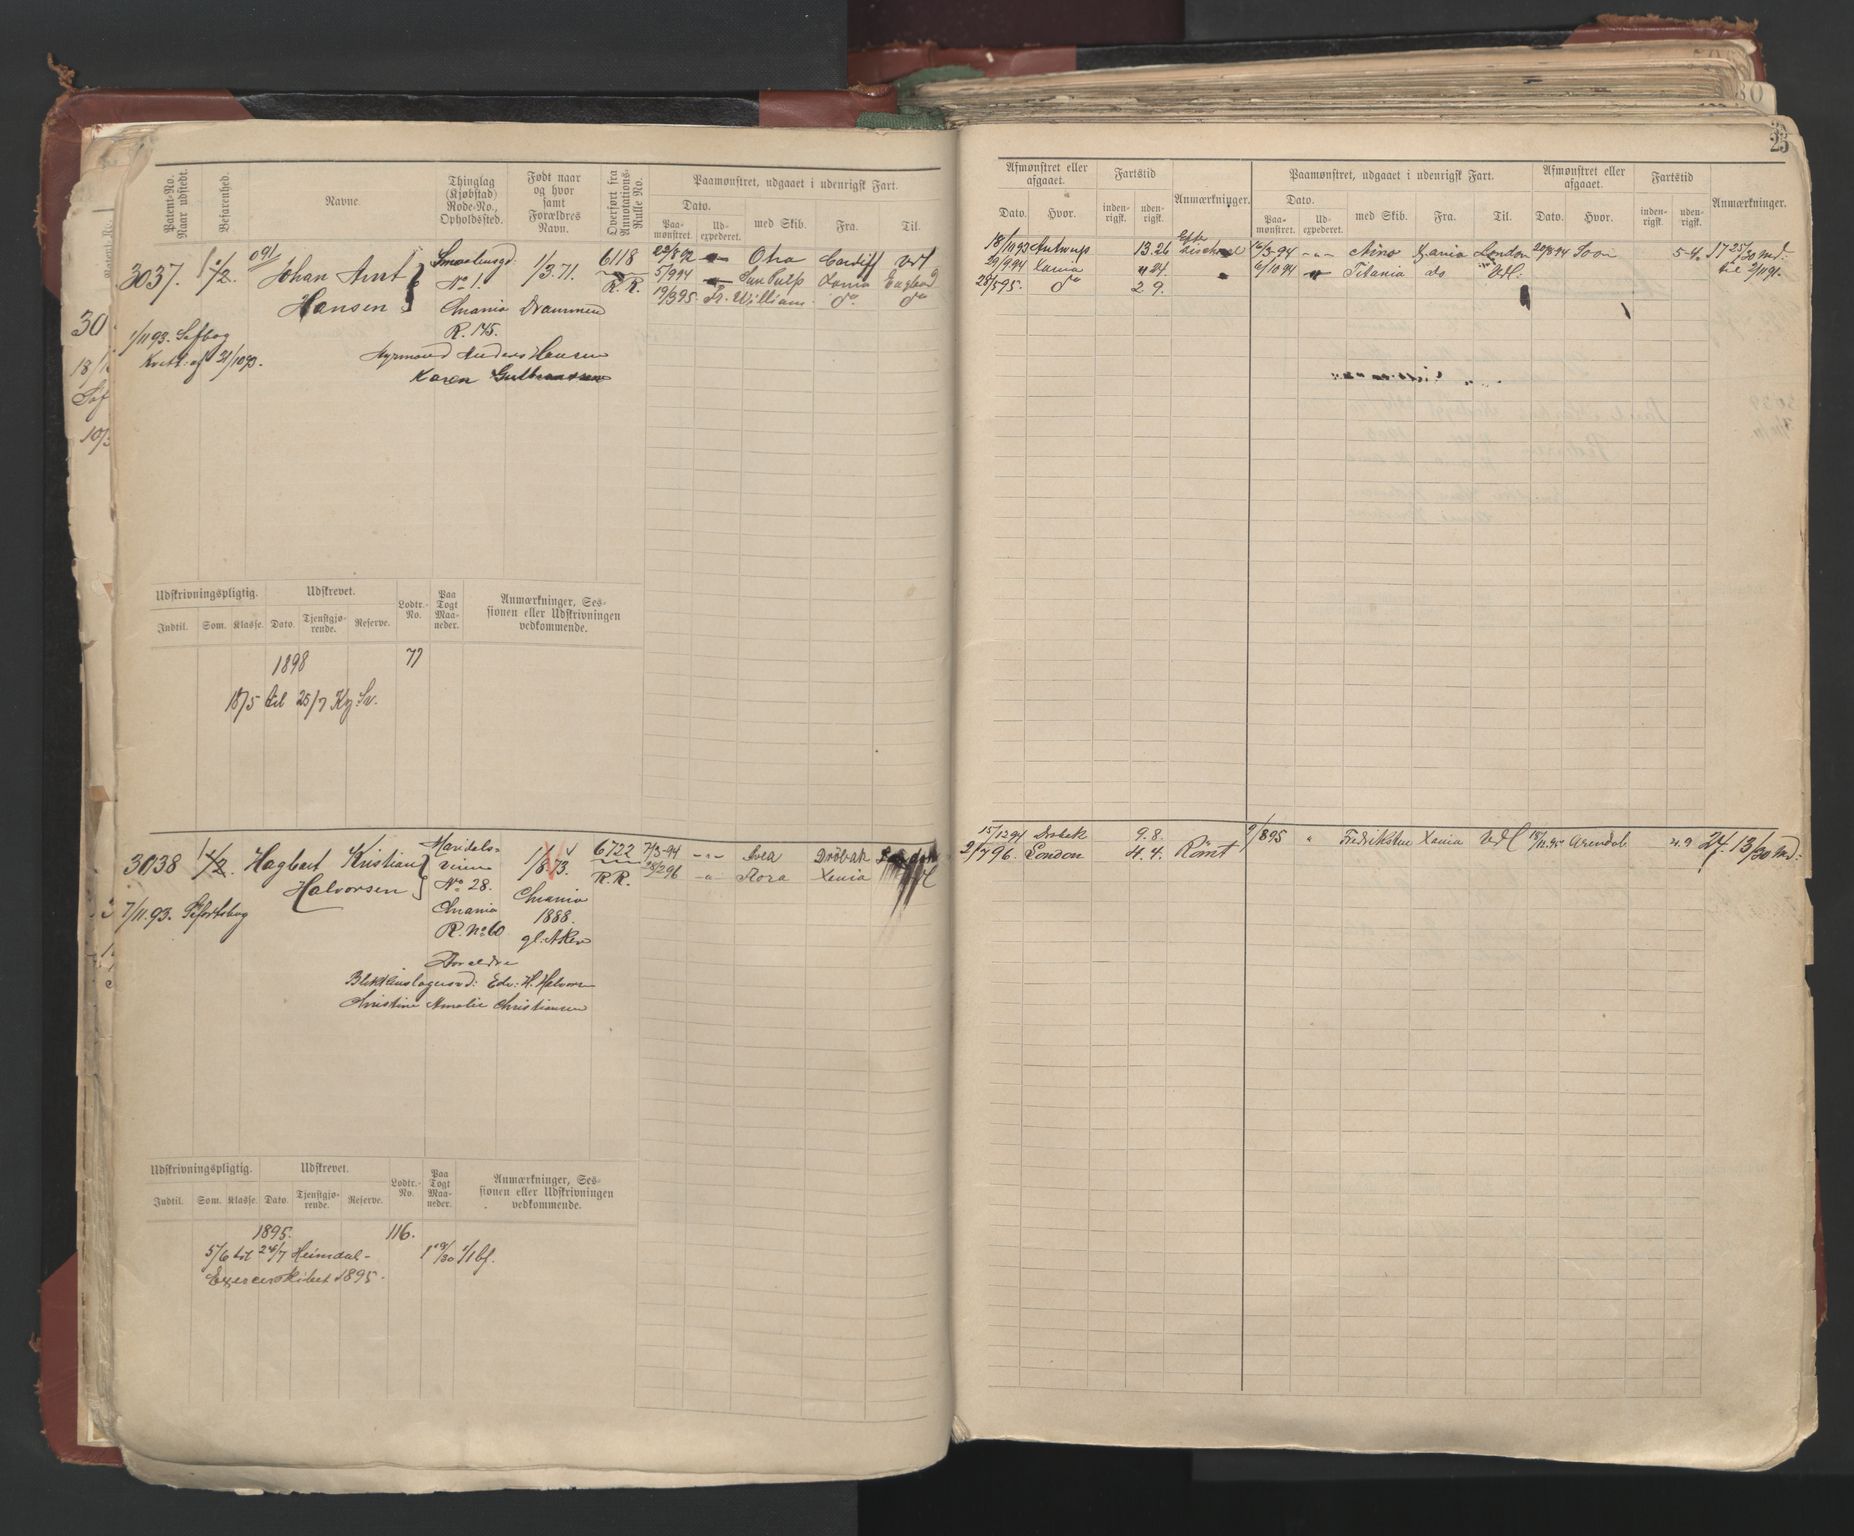 25
Patent-No. Naar udstedt.
Befarenhed.
Navne.
Thinglag (Kjøbstad) Rode-No., Opholdssted.
Født naar og hvor samt Forældres Navn.
Overført fra Annotations-Rulle No.
Paamønstret, udgaaet i udenrigsk Fart.
Dato.
Paamønstret.
Udexpederet.
med Skib.
Fra.
Til.
Afmønstret eller afgaaet.
Dato.
Hvor.
Fartstid
indenrigsk.
udenrigsk.
Anmærkninger.
Paamønstret, udgaaet i udenrigsk Fart.
Dato.
Paamønstret.
Udexpederet.
med Skib.
Fra.
Til.
Afmønstret eller afgaaet.
Dato.
Hvor.
Fartstid
indenrigsk.
udenrigsk.
Anmærkninger.
3037.
Johan Arnt
Hansen
No 1.
Chania Drammen
R. 145.
1/3.71.
6118
R. R.
1/11 93. Søfbog
Kvitt: af 31/10 93.
Anders Hansen
Karen Gulbransen
22/8 92 Otra Cardiff
5/9 94 Sun Pulp Xania England
19/3 95. Fr. William do do
18/10 93 Antwerp 13.26
29/9 94 Xania 24.
28/5 95. do 2 9.
16/3 94 Aino Xania London 20/8 94
6/10 94 Titania do
17 25/30 md.
Udskrivningspligtig.
Indtil.
Som.
Klasse.
Udskrevet.
Dato.
Tjenstgjørende.
Reserve.
Lodtr.-No.
Paa Togt Maaneder.
Anmærkninger, Sessionen eller Udskrivningen vedkommende.
1898 77
18/5 til 25/7
3038 1/2. Hagbart Kristian
Halvorsen
Maridals-
veien
No 28.
Chania
R. No 60
1/8.73.
Chania
1888.
gl. Aker
6722
R. R.
7/11. 93. Søfartsbog
Forældre
Blikkenslagersvd: Edv: H. Halvors
Christine Amalie Christiansen
7/3 94 Svea Drøbak
28/2 96 Flora Xania
15/12 94 Drøbak 9.8.
2/7 96. London 4.4. Rømt
9/8 95 Fredriksten Xania 18/12 95 Arendal 4.9
27 13/30 md:
Udskrivningspligtig.
Indtil.
Som.
Klasse.
Udskrevet.
Dato.
Tjenstgjørende.
Reserve.
Lodtr.-No.
Paa Togt Maaneder.
Anmærkninger, Sessionen eller Udskrivningen vedkommende.
1895. 116.
5/6 til 24/7 Heimdal-
Exercerskibet 1895.